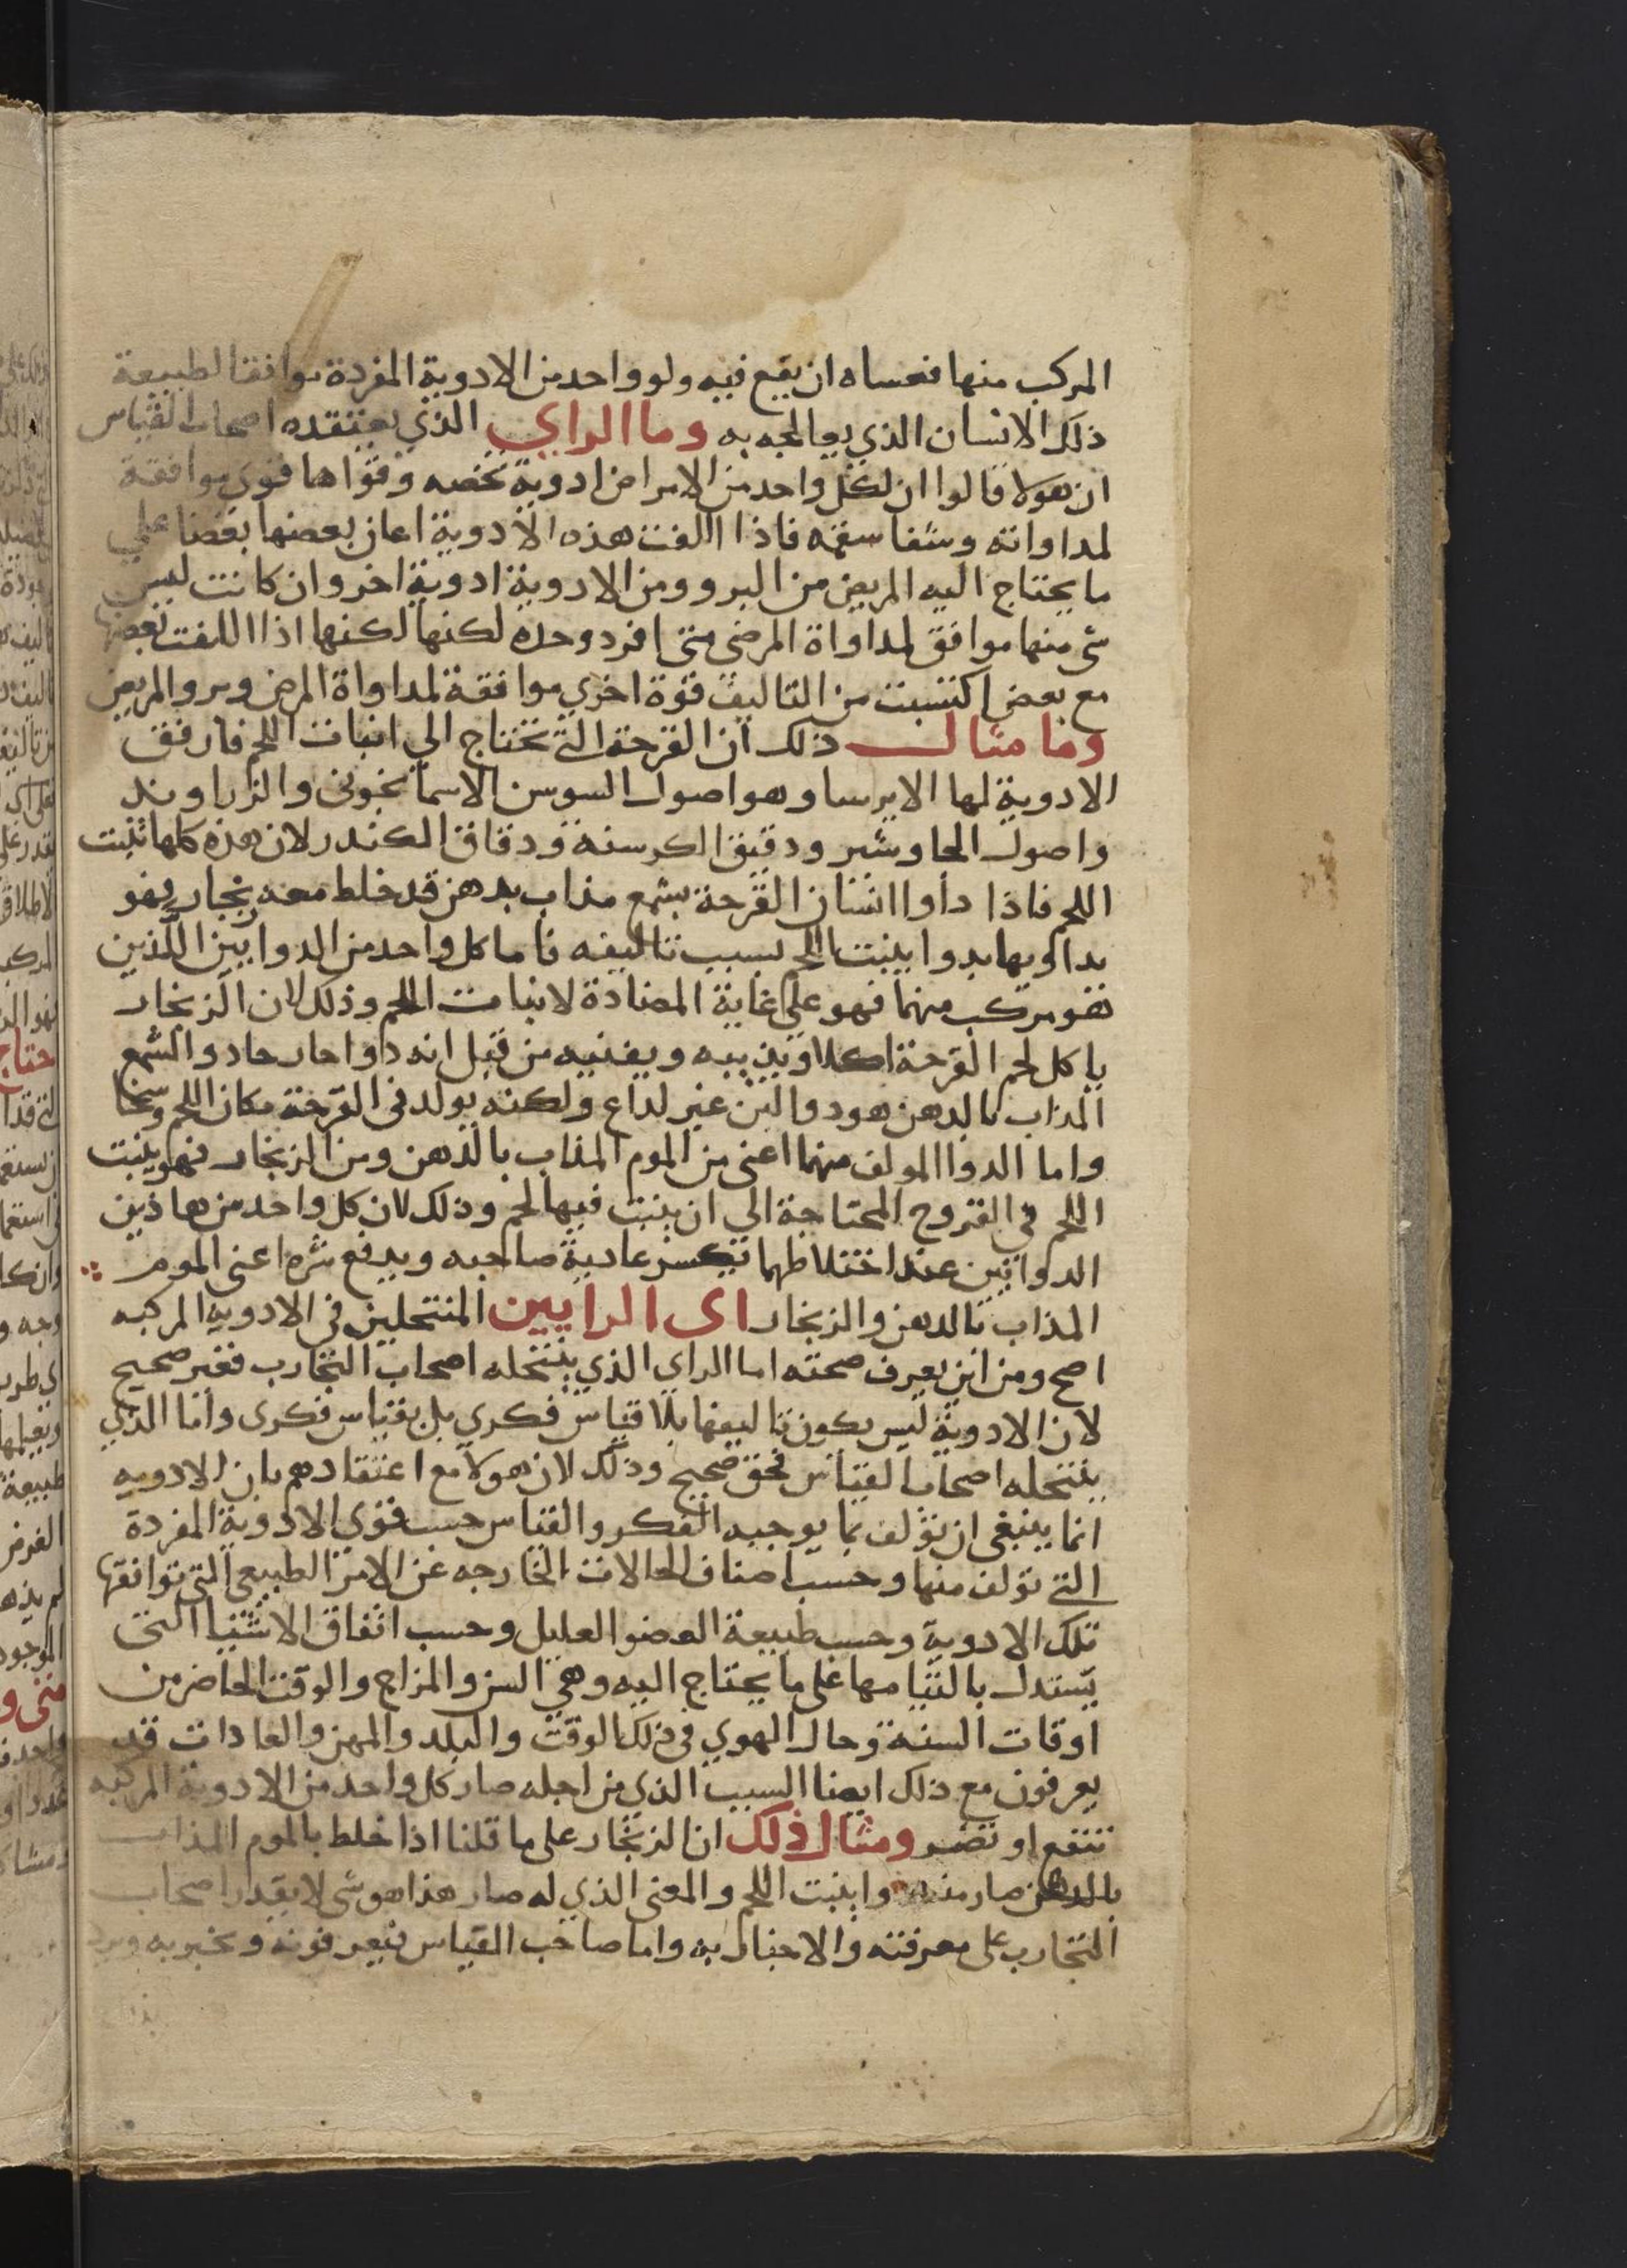 المركب منها فعساه ان يقع فيه ولو واحد من الادوية المفردة موافقا لطبيعة
ذلك الانسان الذي يعالجه به وما الراي الذي يعتقده اصحاب القياس
ان هولا قالوا ان لكل واحد من الامراض ادوية تخصه وقواها قوى موافقة
لمداواته وشفا سقمه فاذا الفت هذه الادوية اعان بعضها بعضا علي
ما يحتاج اليه المريض من البرو ومن الادوية ادوية اخر وان كانت ليس
شى منها موافق لمداواة المرضى متى افرد وحده لكنها لكنها اذا اللفت بعضها
مع بعض اكتسبت من التاليف قوة اخري موافقة لمداواة المرض وبرو المريض
وما مثال ذلك ان القرحة التي تحتاج الي انبات اللحم فارفق
الادوية لها الايرسا وهو اصول السوسن الاسمانجوني والزراوند
واصول الجاوشير ودقيق الكرسنة ودقاق الكندر لان هذه كلها تنبت
اللحم فاذا داوا انسان القرحة بشمع مذاب بدهن قد خلط معه زنجار فهو
يداويها بدوا ينبت اللحم بسبب تاليفه فاما كل واحد من الدوايين اللذين
هو مركب منهما فهو على غاية المضادة لانبات اللحم وذلك لان الزنجار
ياكل لحم القرحة اكلا ويذيبه ويفنيه من قبل انه دوا حار حاد والشمع
المذاب بالدهن هو دوا لين غير لداع ولكنه يولد في القرحة مكان اللحم وسخا
واما الدوا المولف منهما اعنى من الموم المذاب بالدهن ومن الزنجار فهو ينبت
اللحم في القروح المحتاجة الي ان ينبت فيها لحم وذلك لان كل واحد من هاذين
الدوائين عند اختلاطهما يكسر عادية صاحبه ويدفع شره اعنى الموم
المذاب بالدهن والزنجار اى الرايين المنتحلين في الادويه المركبه
اصح ومن اين يعرف صحته اما الراى الذي ينتحله اصحاب التجارب فغير صحيح
لان الادوية ليس يكون تاليفها بلا قياس فكري بل بقياس فكرى واما الذي
ينتحله اصحاب القياس فحق صحيح وذلك لان هولا مع اعتقادهم بان الادويه
انما ينبغى ان تولف بما يوجبه الفكر والقياس حسب قوي الادوية المفردة
التي تولف منها وحسب اصناف الحالات الخارجه عن الامر الطبيعي التي توافقها
تلك الادوية وحسب طبيعة العضو العليل وحسب اتفاق الاشيا التى
يستدل بالتيامها على ما يحتاج اليه وهي السن والمزاج والوقت الحاضر من
اوقات السنة وحال الهوي في ذلك الوقت والبلد والمهن والعادات قد
يعرفون مع ذلك ايضا السبب الذي من اجله صار كل واحد من الادوية المركبه
تنفع او تضر ومثال ذلك ان الزنجار على ما قلنا اذا خلط بالموم المذاب
بالدهن صار منه دوا ينبت اللحم والمعنى الذي له صار هذا هو شى لا يقدر اصحاب
التجارب على معرفته والاخبار به واما صاحب القياس فيعرفونه ويخبر به